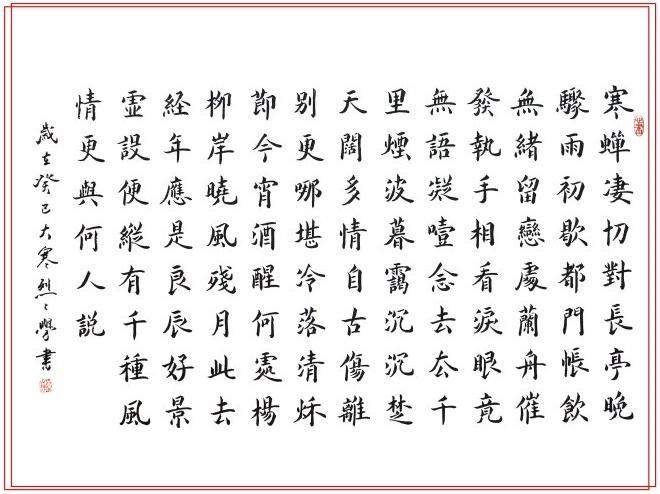 寒蟬凄切對長亭晚
驟雨初歇都門帳飲
無緒留戀處蘭舟催
發執手相看淚眼竟
無語凝噎念去厺千
里煙波暮靄沉沉楚
天闊多情自古傷離
別更哪堪冷落清秋
節今宵酒醒何處楊
柳岸曉風殘月此去
經年應是良辰好景
虛設便縱有千種風
情更與何人說
歲在癸巳大寒烈〻學書